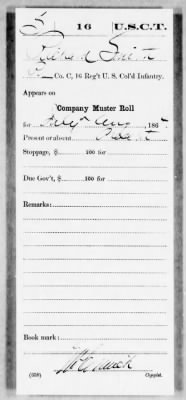 S 16 U.S.C.T.
Richard Smith
Co. C, 16 Reg't U. S. Col'd Infantry.
Appears on
Company Muster Roll
for July & Aug, 186
Present or absent Present
Stoppage, $ 100 for
Due Gov't, $ 100 for
Remarks:
Book mark:
(858) Copyist.